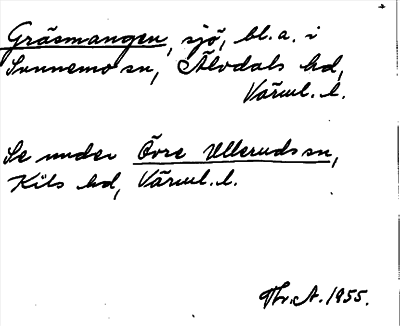 Gräsmangen, sjö, bl.a. i
Sunnemo sn, Älvdals hd,
Värml. l.
Se under Övre Ulleruds sn,
Kils hd, Värml. l.
Thr. A. 1955.